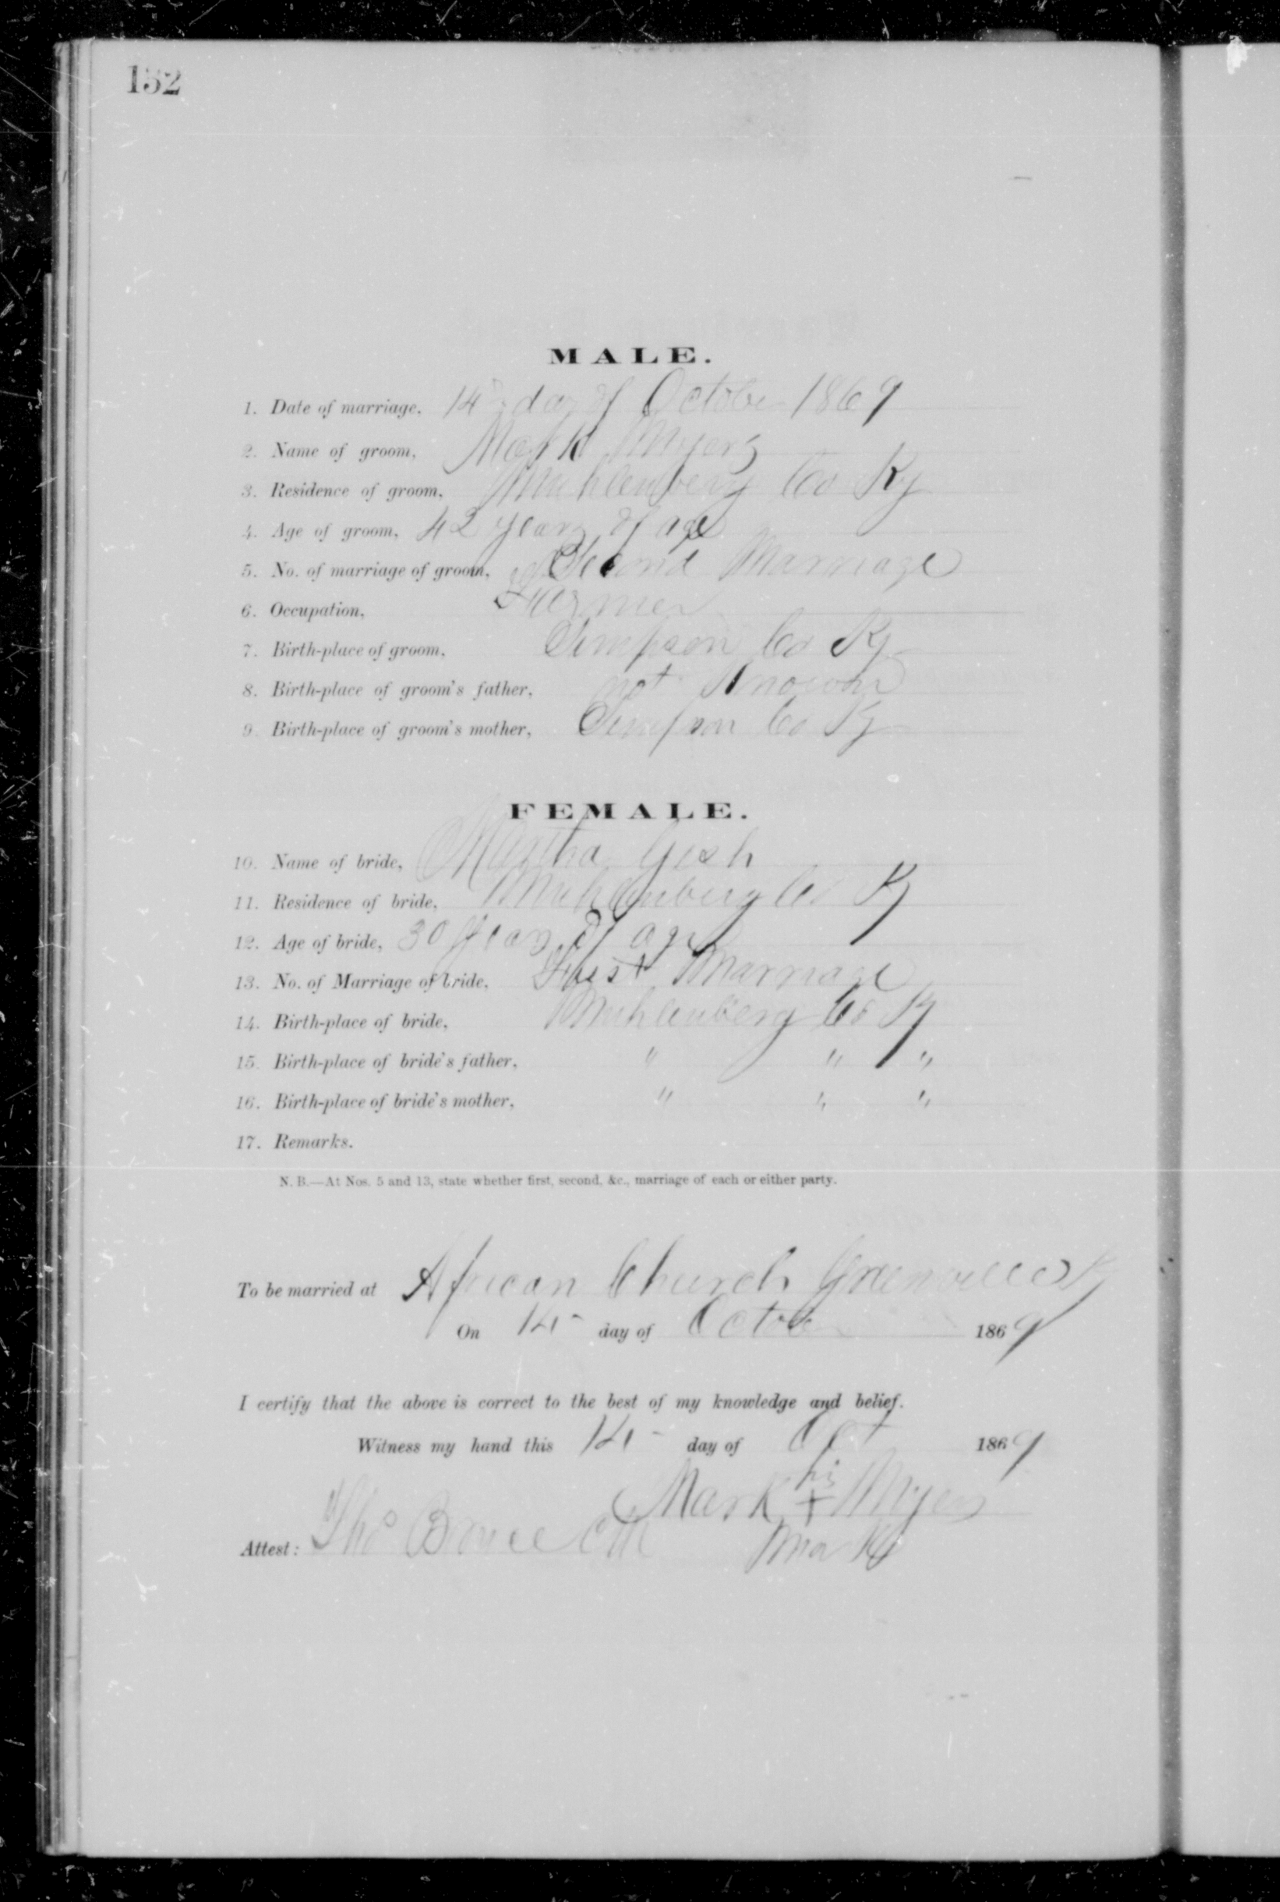 152
MALE.
1. Date of marriage, 14 day of October 1869
2. Name of groom, Mark Myers
3. Residence of groom, Muhlenberg Co Ky
4. Age of groom, 42 years of age
5. No. of marriage of groom, Second Marriage
6. Occupation, Farmer
7. Birth-place of groom, Simpson Co Ky
8. Birth-place of groom's father, not Known
9. Birth-place of groom's mother, Simpson Co Ky
FEMALE.
10. Name of bride, Martha Gish
11. Residence of bride, Muhlenberg Co Ky
12. Age of bride, 30 years of age
13. No. of Marriage of bride, First Marriage
14. Birth-place of bride, Muhlenberg Co Ky
15. Birth-place of bride's father, " " "
16. Birth-place of bride's mother, " " "
17. Remarks.
N. B.—At Nos. 5 and 13, state whether first, second, &c., marriage of each or either party.
To be married at African Church Greenville Ky
On 14 day of October 1869
I certify that the above is correct to the best of my knowledge and belief.
Witness my hand this 14 day of Oct 1869
his
Mark + Myers
Attest: Thos Bruce mark